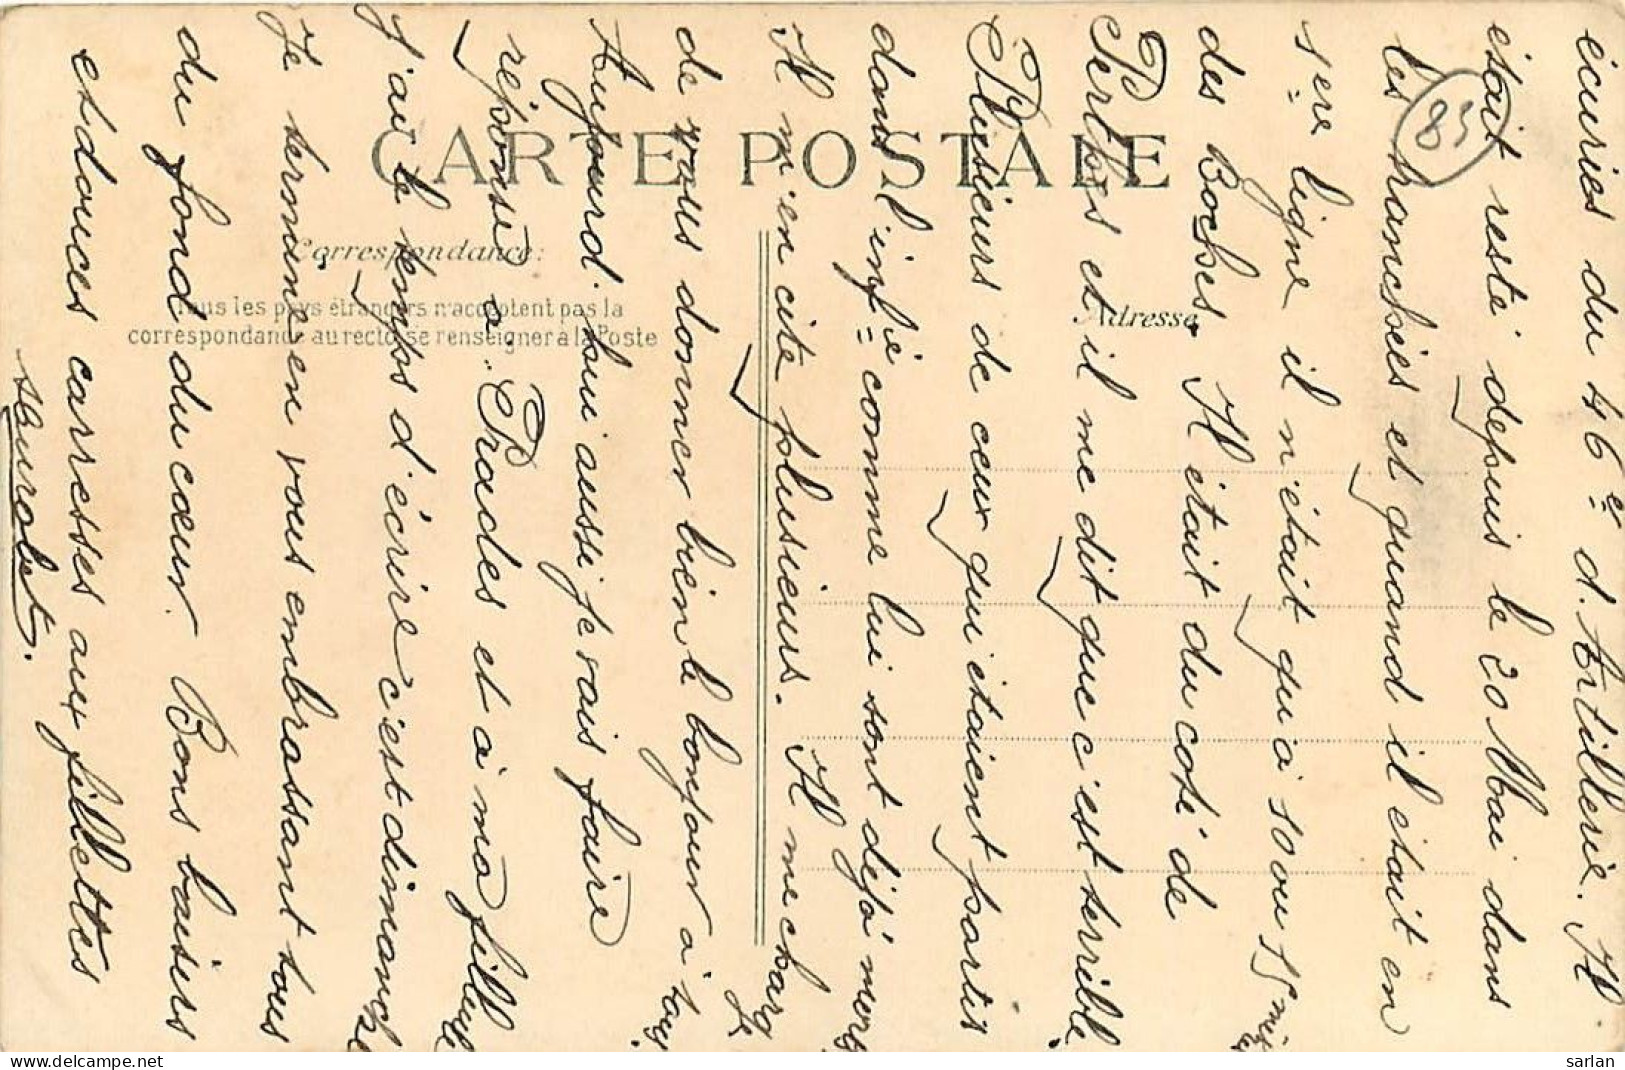 écuries du 46e d'Artillerie. Il
était resté depuis le 20 Mai dans
les tranchées et quand il était en
1ere ligne il n'était qu'à 10 ou 15 mètres
des Boches. Il était du coté de
Perthes et il me dit que c'est terrible
Plusieurs de ceux qui étaient partis
dans l'inf.ie comme lui sont déjà morts
Il m'en cite plusieurs. Il me charge
de vous donner bien le bonjour à tous.
Aujourd'hui aussi je vais faire
réponse à Prades et à ma filleule
J'ai le temps d'écrire c'est dimanche
Je termine en vous embrassant tous
du fond du cœur. Bons baisers
et douces carresses aux fillettes
CARTE POSTALE
Correspondance:
Tous les pays étrangers n'acceptent pas la
correspondance au recto, se renseigner à la Poste
Adresse
sarlan